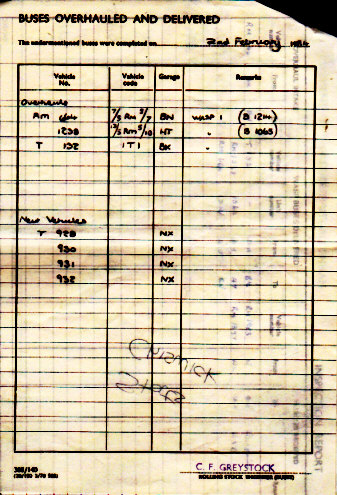 BUSES OVERHAULED AND DELIVERED
The undermentioned buses were completed on 2nd February 1984
Vehicle No. Vehicle code Garage Remarks
Overhauls
Rm 644 7/5 Rm 5/7 BN WASP 1 (B 1214)
1238 13/5 Rm 5/10 HT " (B 1065)
T 132 1T1 BK
New Vehicles
T 928 NX
930 NX
931 NX
932 NX
Chiswick
Stores
C. F. GREYSTOCK
ROLLING STOCK ENGINEER (BUSES)